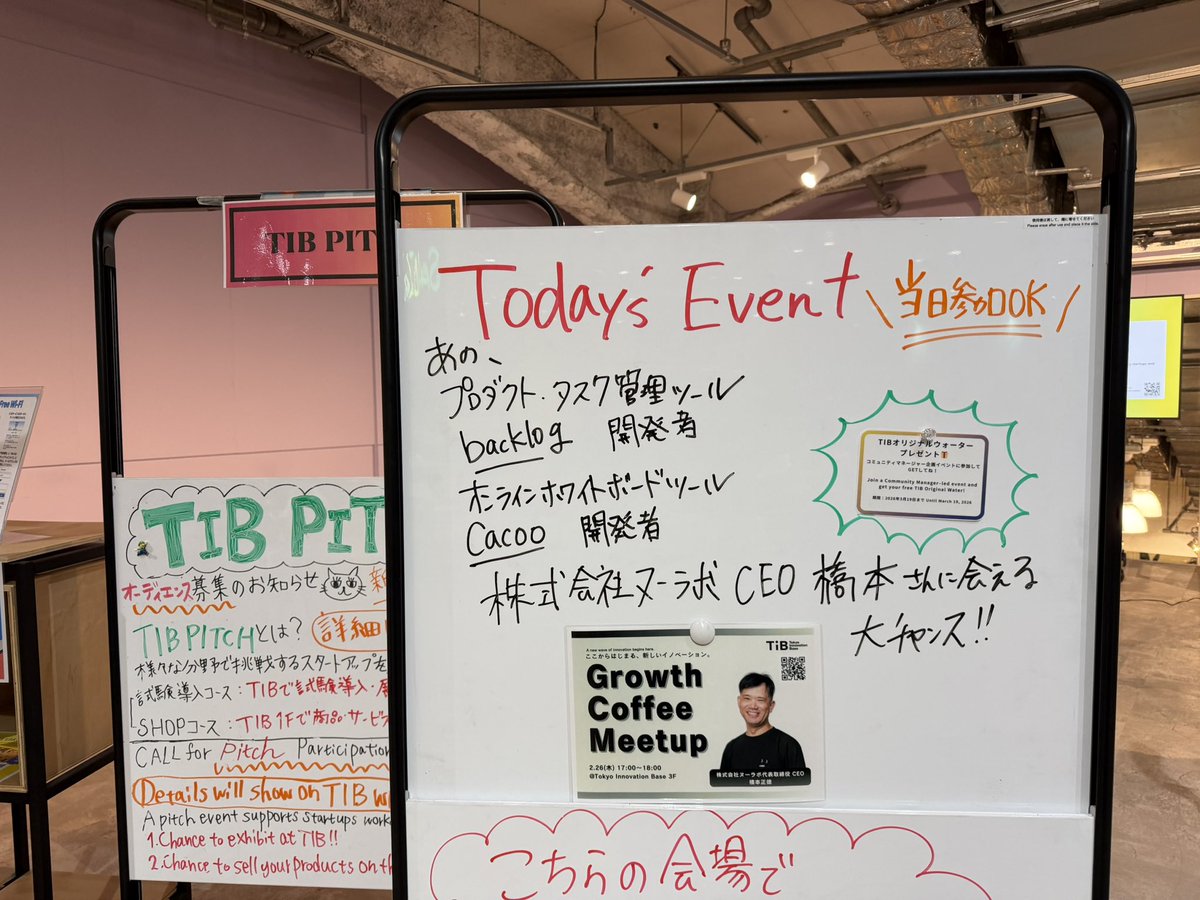 使用後は消して、元の場所に戻してください
Please erase after use and place it the side.
Today's Event
\当日参加OK/
あの、
プロダクト・タスク管理ツール
backlog 開発者
オンラインホワイトボードツール
Cacoo 開発者
株式会社ヌーラボ CEO 橋本さんに会える
大チャンス!!
TIBオリジナルウォーター
プレゼント
コミュニティマネージャー企画イベントに参加して
GETしてね!
Join a Community Manager-led event and
get your free TIB Original Water!
期間:2026年3月19日まで Until March 19, 2026
A new wave of innovation begins here.
ここからはじまる、新しいイノベーション。
TiB Tokyo Innovation Base
Growth
Coffee
Meetup
2.26(木) 17:00~18:00
@Tokyo Innovation Base 3F
株式会社ヌーラボ代表取締役 CEO
橋本正徳
こちらの会場で
TIB PIT
TIB PIT
オーディエンス募集のお知らせ
TIB PITCHとは? 詳細
様々な分野で挑戦するスタートアップを
試験導入コース:TIBで試験導入・展
SHOPコース:TIB 1Fで商品・サービス
CALL for Pitch Participation
Details will show on TIB w
A pitch event supports startups work
1.Chance to exhibit at TIB!!
2.Chance to sell your products on th
Free Wi-Fi